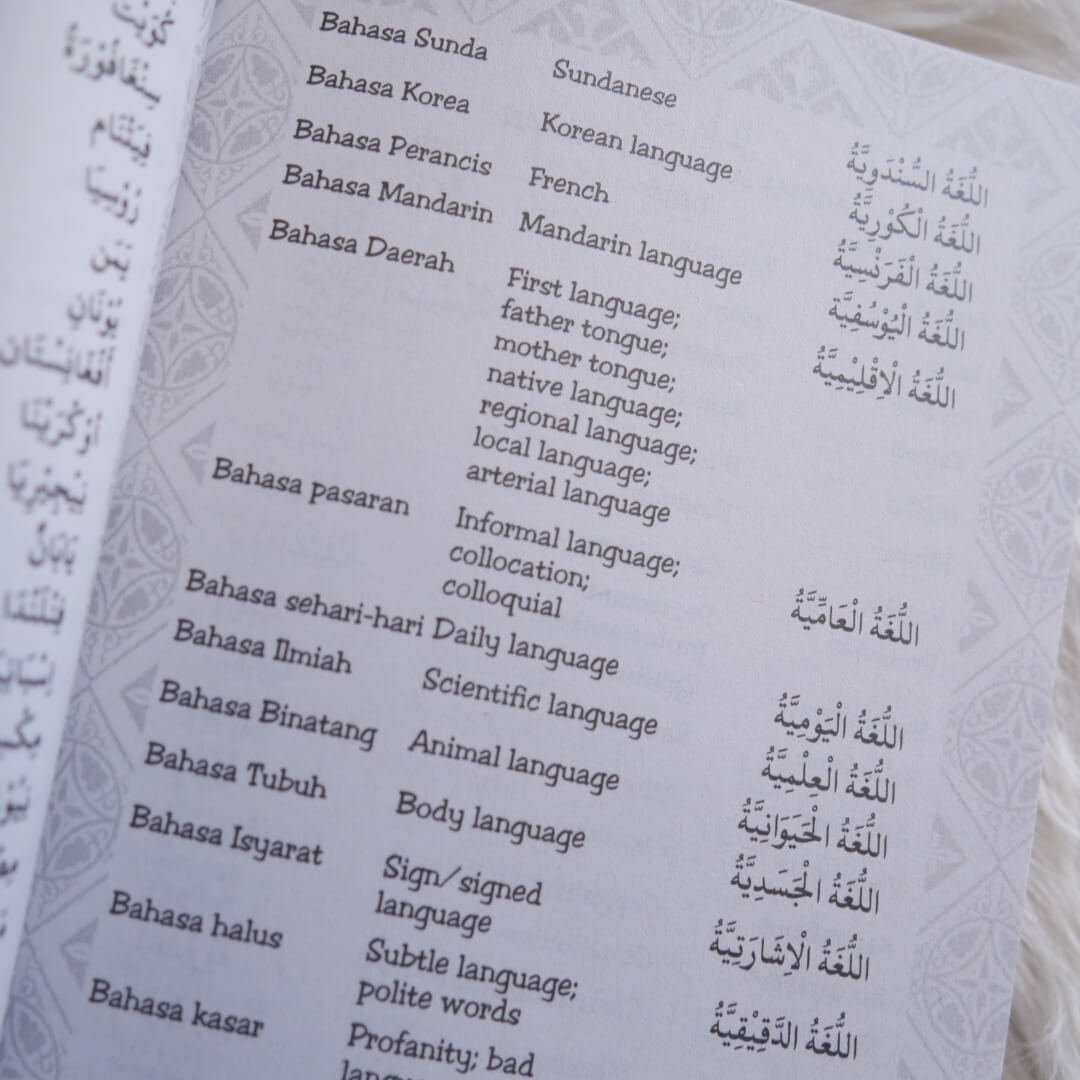 Bahasa Sunda Sundanese اللُّغَةُ السُّنْدَوِيَّةُ
Bahasa Korea Korean language اللُّغَةُ الْكُوْرِيَّةُ
Bahasa Perancis French اللُّغَةُ الْفَرَنْسِيَّةُ
Bahasa Mandarin Mandarin language اللُّغَةُ الْيُوْسُفِيَّة
Bahasa Daerah First language; اللُّغَةُ الْاِقْلِيْمِيَّةُ
father tongue;
mother tongue;
native language;
regional language;
local language;
arterial language
Bahasa pasaran Informal language; اللُّغَةُ الْعَامِّيَّةُ
collocation;
colloquial
Bahasa sehari-hari Daily language اللُّغَةُ الْيَوْمِيَّةُ
Bahasa Ilmiah Scientific language اللُّغَةُ الْعِلْمِيَّةُ
Bahasa Binatang Animal language اللُّغَةُ الْحَيَوَانِيَّةُ
Bahasa Tubuh Body language اللُّغَةُ الْجَسَدِيَّةُ
Bahasa Isyarat Sign/signed اللُّغَةُ الْاِشَارَتِيَّةُ
language
Bahasa halus Subtle language; اللُّغَةُ الدَّقِيْقِيَّةُ
polite words
Bahasa kasar Profanity; bad